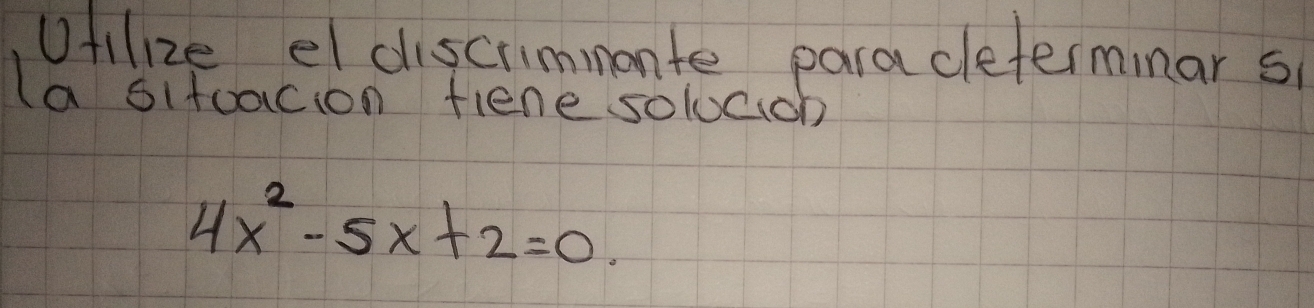 Utilize el discriminante para determinar si
la situacion tiene solucion
4x² - 5x + 2 = 0.